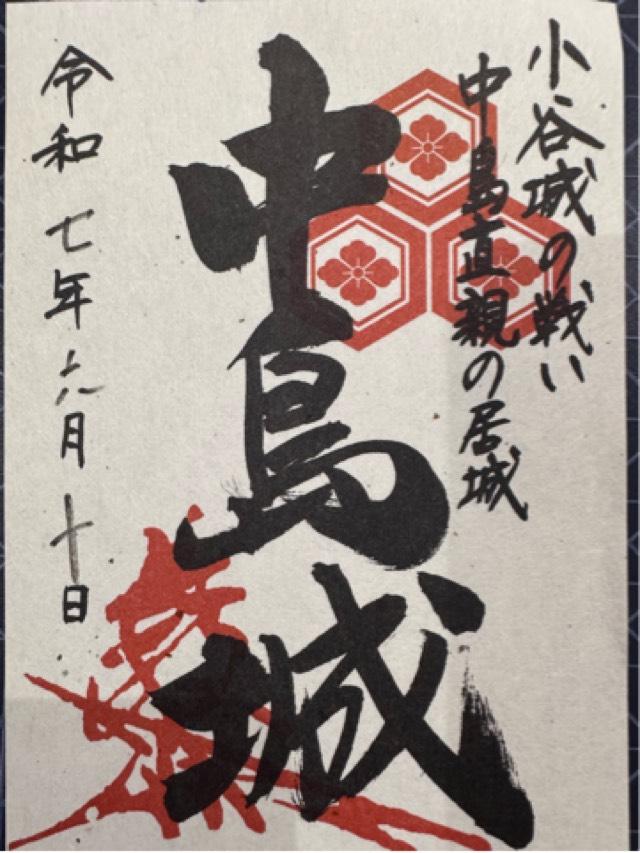 小谷城の戦い
中島直親の居城
中島城
令和七年六月十日